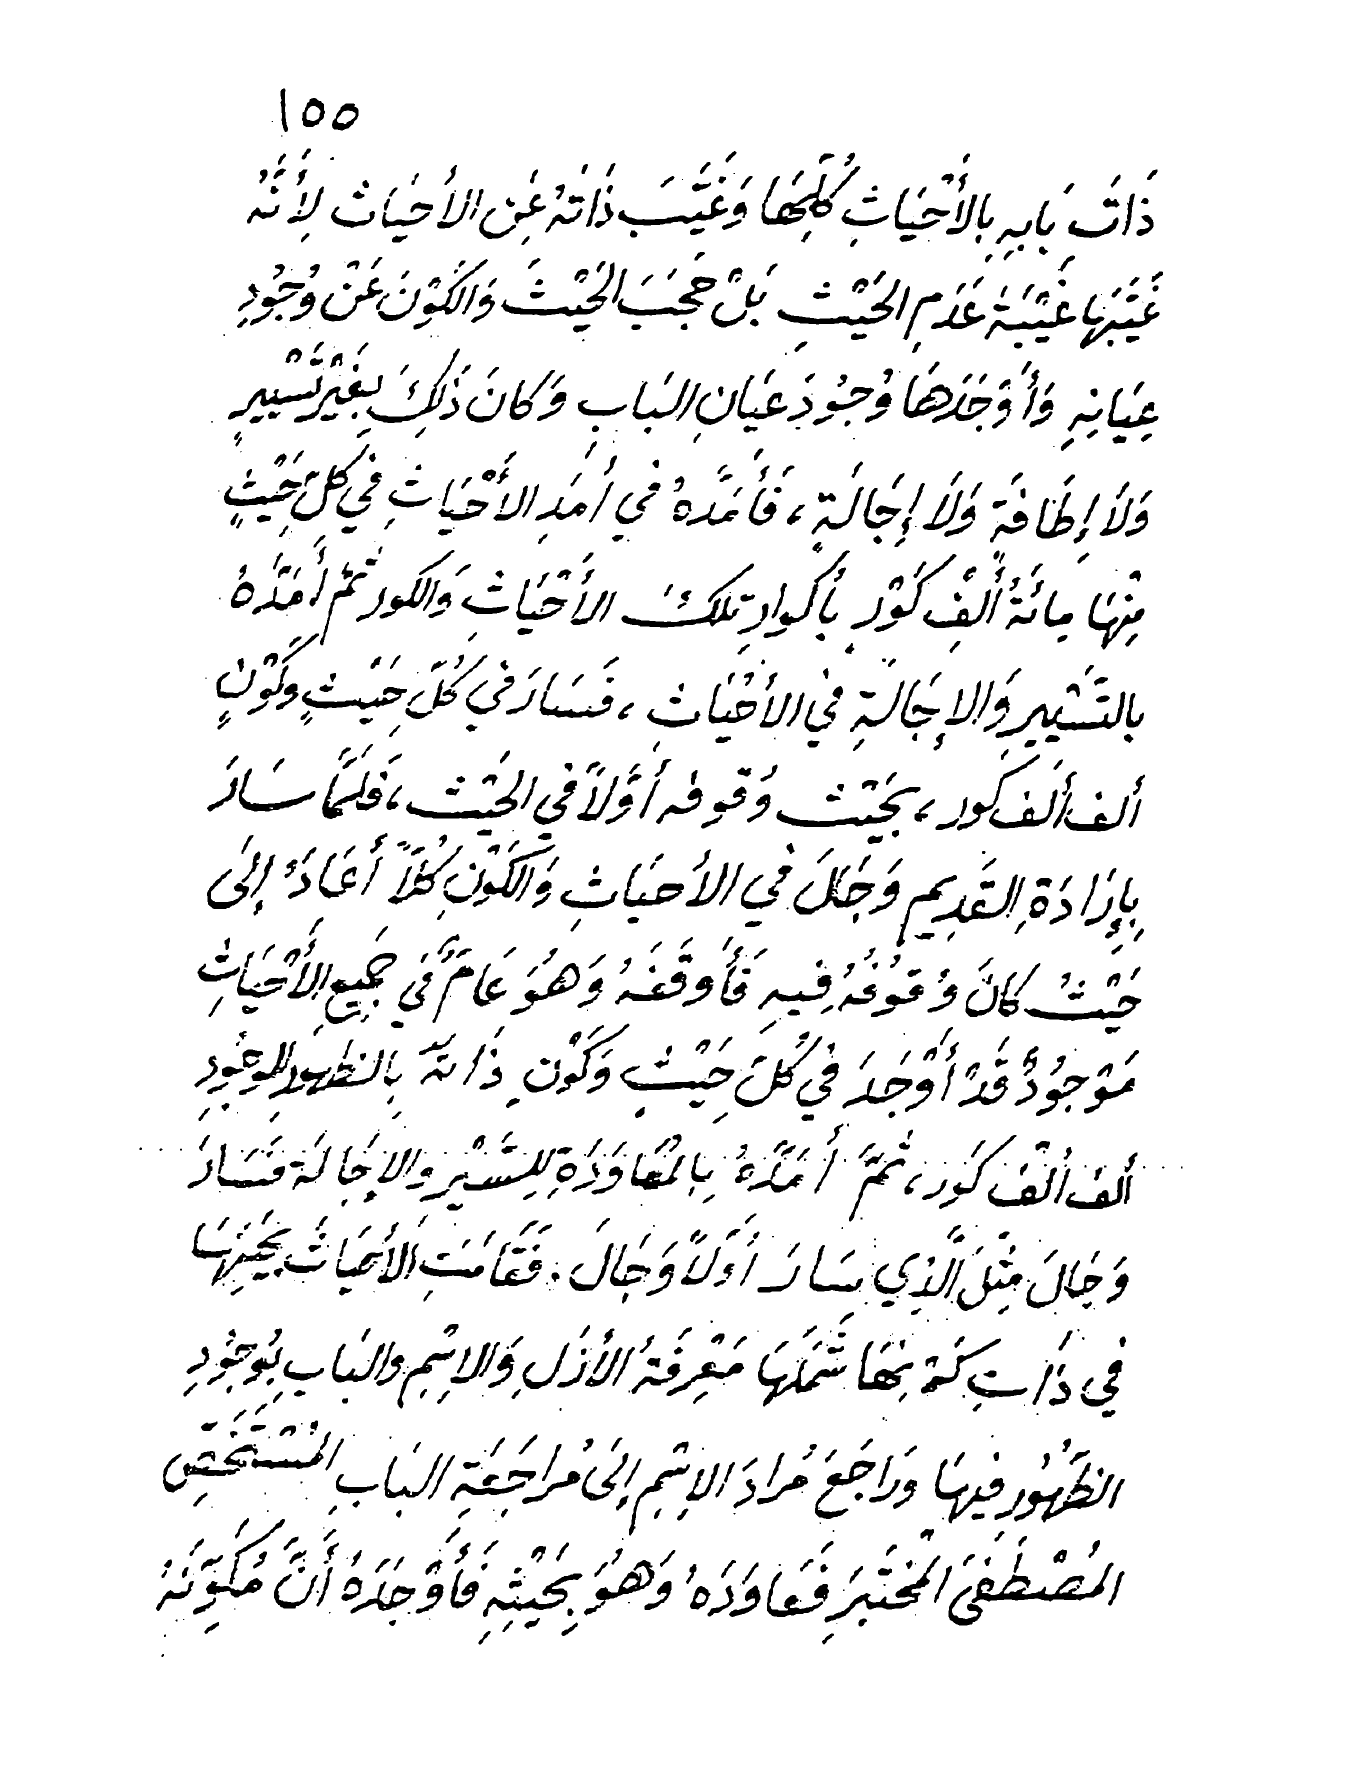 ١٥٥
ذَاتَ بَابِهِ بِالأَحْيَاثِ كُلِّهَا وَغَيَّبَ ذَاتَهُ عَنِ الأحيَاث لِأَنَّهُ
غَيَّبَهَا غَيْبَةَ عَدَمِ الحَيْثِ بَلْ حَجَبَ الحَيْثَ وَالكَوْنَ عَنْ وُجُودِ
عِيَانِهِ وَأَوْجَدَهَا وُجُودَ عَيَانِ البَابِ وَكَانَ ذَلِكَ بِغَيْرِ تَسْيِيرٍ
وَلَا إِطَافَةٍ وَلَا إِجَالَةٍ، فَأَمَدَّهُ فِي أَمَدِ الأَحْيَاثِ فِي كُلِّ حَيْثٍ
مِنْهَا مِائَةُ أَلْفِ كَوْرٍ بِأَكْوَارِ تِلْكَ الأَحْيَاثِ وَالكور ثُمَّ أَمَدَّهُ
بالتَّسْيِيرِ وَالإِجَالَةِ فِي الأَحْيَاثِ، فَسَارَ فِي كُلِّ حَيْثٍ وَكَوْنٍ
ألف ألف كَور، بِحَيْث وُقوفه أوَّلاً فِي الحَيْث، فَلَمَّا سَارَ
بِإِرَادَةِ القَدِيمِ وَجَالَ فِي الأحيَاثِ وَالكَوْنِ كُلًّا أَعَادَهُ إِلَى
حَيْثُ كَانَ وُقُوفُهُ فِيهِ فَأَوقَفَهُ وَهُوَ عَامٌّ فِي جَمِيعِ الأَحْيَاثِ
مَوْجُودٌ قَدْ أَوْجَدَ فِي كُلِّ حَيْثٍ وَكَوْنٍ ذَاتَهُ بِالظهورِ للوجُودِ
ألف ألْف كَور، ثُمَّ أَمَدَّهُ بِالمُعَاوَدَةِ لِلسَّيْرِ وَالإِجَالَة فَسَارَ
وَجَالَ مِثْلَ الَّذِي سَارَ أَوَّلاً وَجَالَ. فَقَامَتِ الأَحيَاثُ بِحَيْثِهَا
فِي ذَاتِ كَوْنِهَا شَمَلَهَا مَعْرِفَةُ الأَزَلِ وَالاِسْمِ وَالبَابِ بِوُجُودِ
الظُّهُورِ فِيهَا وَرَاجَعَ مُرَادَ الاِسْمِ إِلَى مُراجَعَةِ البَابِ المُسْتَخَصِّ
المُصْطَفَى المُخْتَبَرِ فَعَاوَدَهُ وَهُوَ بِحَيْثِهِ فَأَوْجَدَهُ أَنَّ مُكَوِّنَهُ